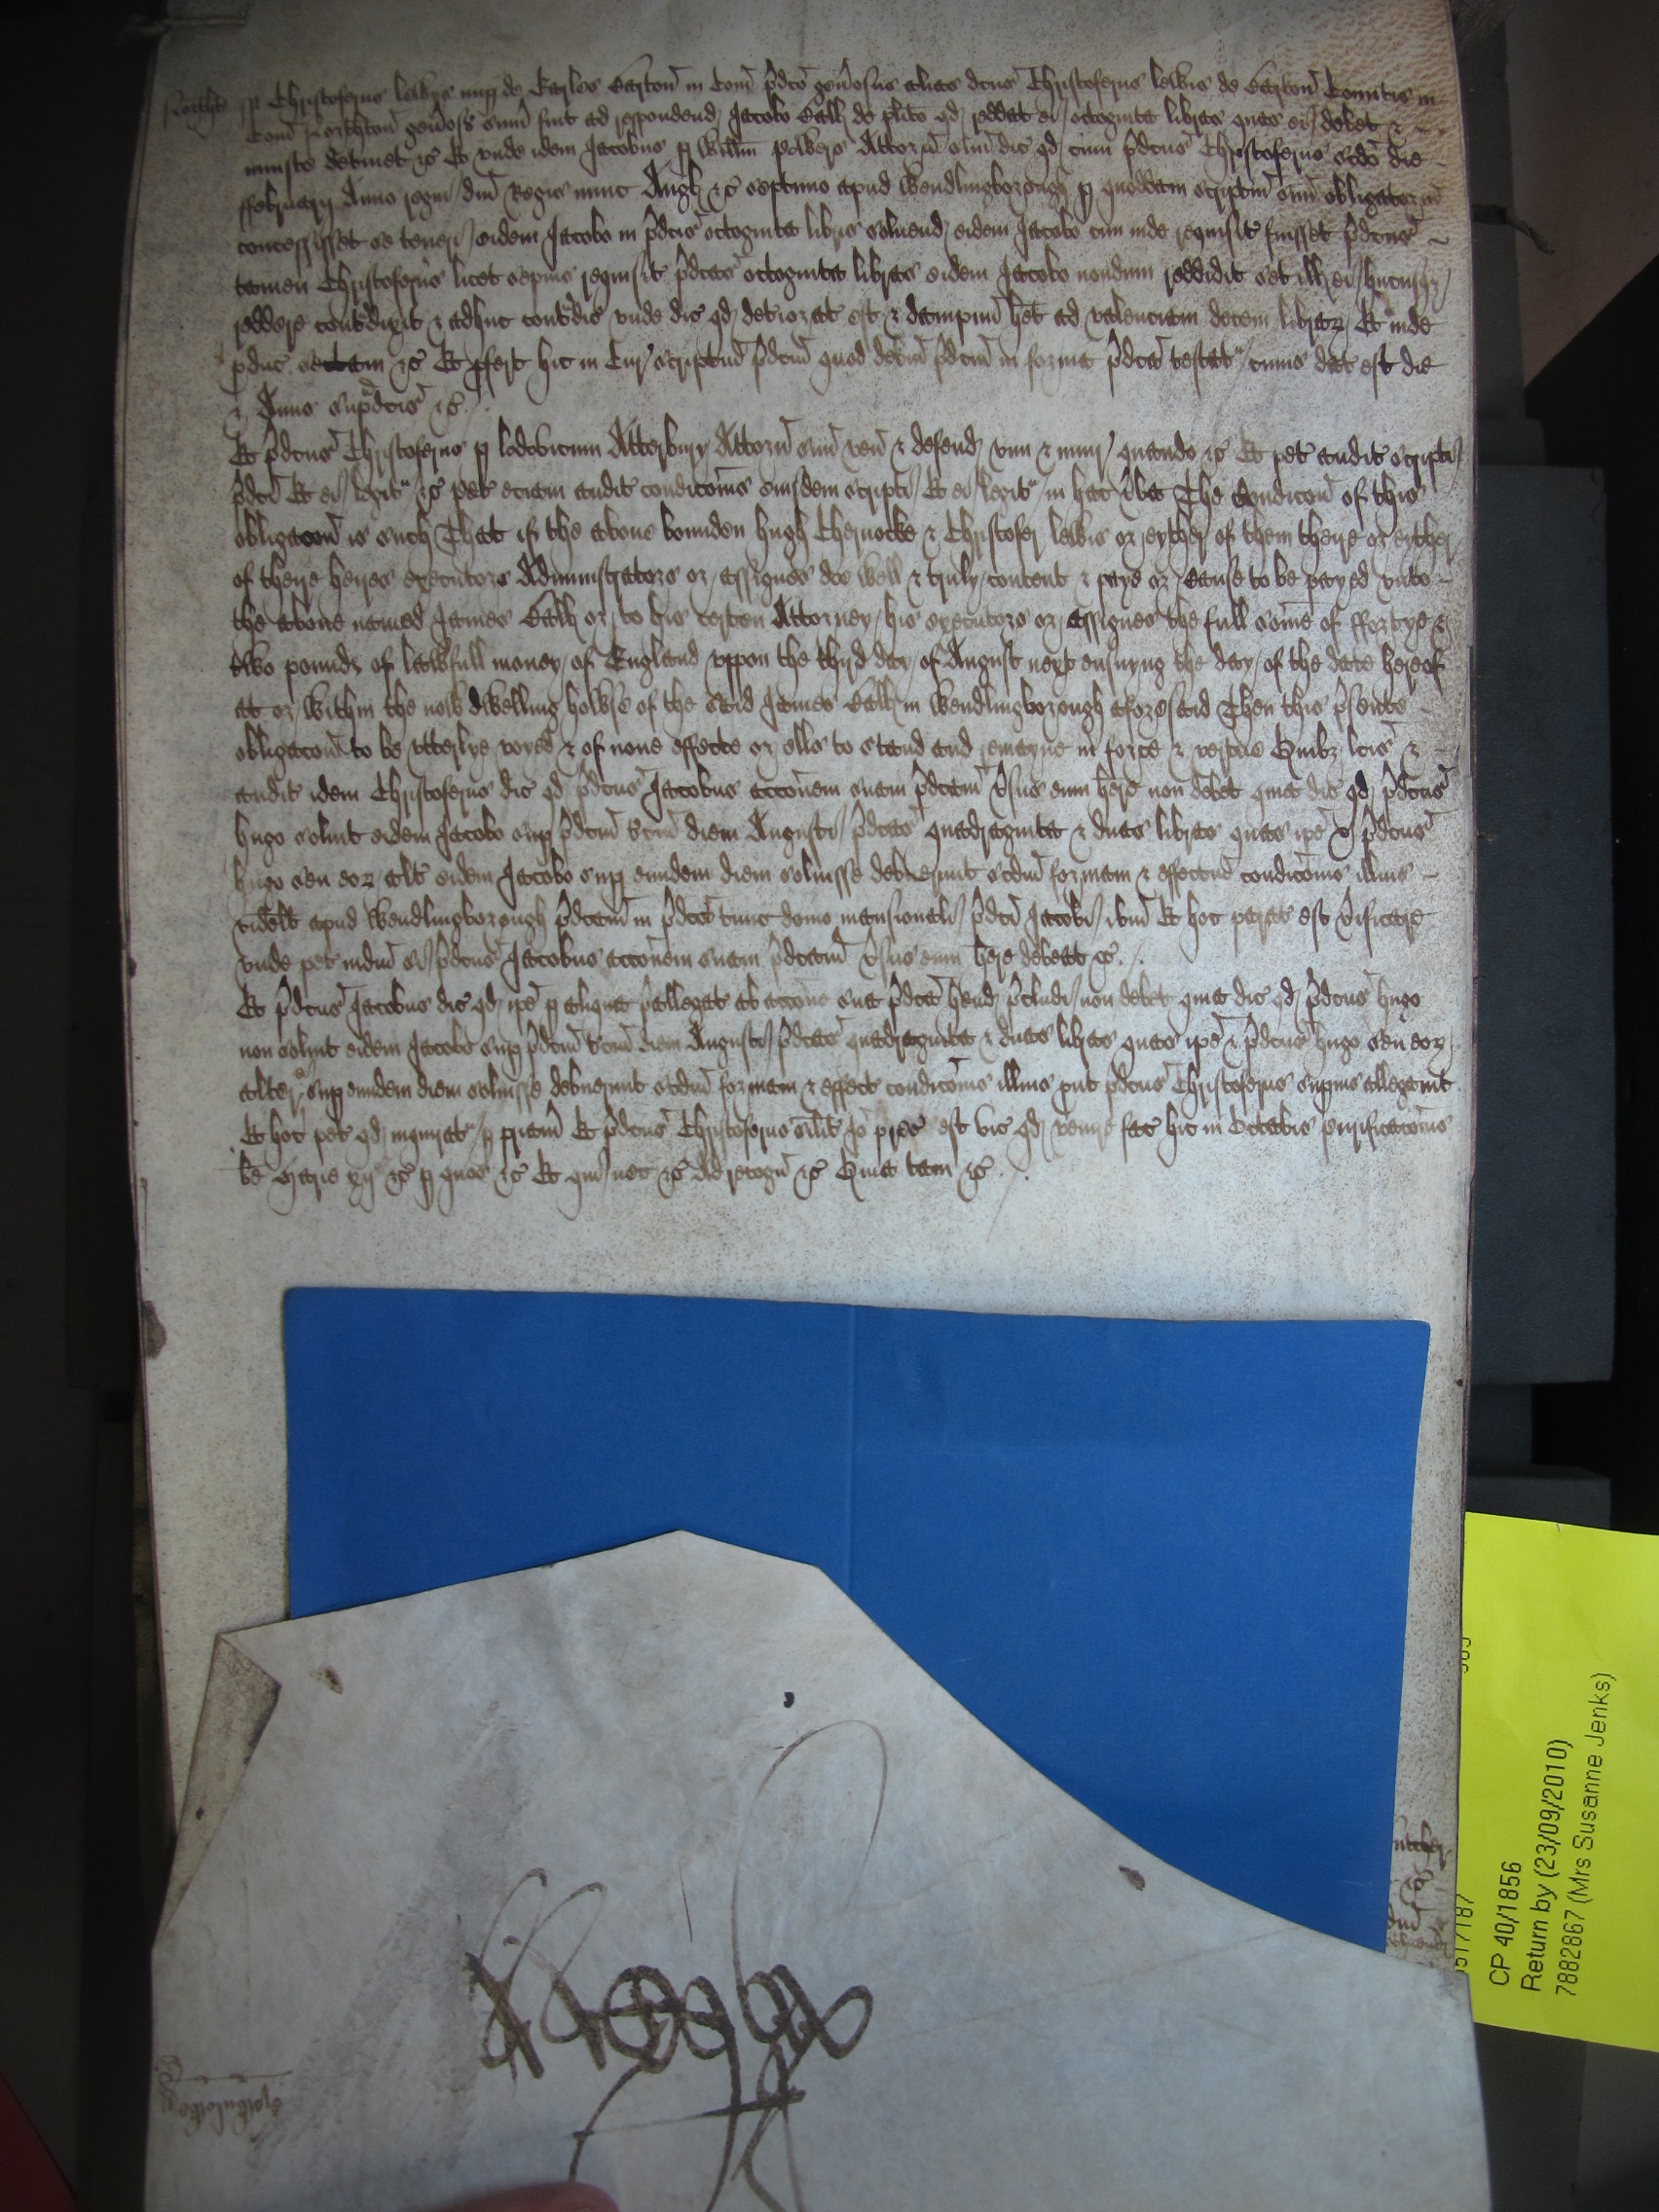 Northt ss Christoferus lewys nup de Earles Barton in Com pdco genosus alias dcus Christoferus lewis de Barton Comitis in
Com Northton genoss sum fuit ad respondend Jacobo Call de plito qd reddat ei octoginta libras quas ei debet &
iniuste detinet &c Et unde idem Jacobus p Willm powers Attorn suu dic qd cum pdcus Christoferus scdo die
ffebruary Anno regni dni Regis nunc Angl &c septimo apud Wendlingborough p quoddam scriptu suu obligatoriu
concessisset se teneri eidem Jacobo in pdcis octoginta libris soluend eidem Jacobo cum inde requisit fuisset pdcus
tamen Christoferus licet sepius requisit pdcas octoginta libras eidem Jacobo nondum reddidit set ill ei hucusq
reddere contradixit & adhuc contradic unde dic qd deteriorat est & dampnu het ad valenciam decem librar Et inde
produc sectam &c Et pfert hic in Cur scriptu pdcm quod debitu pdcm in forma pdca testat cuius dat est die
& Anno supradcis &c
Et pdcus Christoferus p lodovicum Atterbury Attorn suu ven & defend vim & iniur quando &c Et pet audit scripti
pdci Et ei legit &c pet eciam audit condicois eiusdem scripti Et ei legit in hec verba The Condicon of this
obligacon is such That if the above bounden hugh Chernocke & Christofer lewis or eyther of them theire or eyther
of theire heires executors Administrators or assignes doe well & truly content & paye or cause to be payed unto
the above named James Call or to his certen Attorney his executors or assignes the full some of ffortye &
two pounds of lawfull money of England uppon the thyrd day of August next ensuyng the day of the date hereof
at or within the now dwelling howse of the said James Call in Wendlingborough aforesaid Then this psente
obligacon to be utterlye voyed & of none effecte or ells to stand and remayne in force & vertue Quibz lcis &
audit idem Christoferus dic qd pdcus Jacobus accoem suam pdcam vsus eum here non debet quia dic qd pdcus
hugo soluit eidem Jacobo sup pdcm tciu diem Augusti pdcas quadraginta & duas libras quas ipe & pdcus
hugo seu eor alt eidem Jacobo sup eundem diem soluisse debuerunt scdm formam & effectu condicois illius
videlt apud Wendlingborough pdcam in pdca tunc domo mansionali pdci Jacobi ibm Et hoc parat est verificare
unde pet iudm si pdcus Jacobus accoem suam pdcam vsus eum here debeat &c
Et pdcus Jacobus dic qd ipe p aliqua pallegat ab accone sua pdca hend pcludi non debet quia dic qd pdcus hugo
non soluit eidem Jacobo sup pdcm tciu diem Augusti pdcas quadraginta & duas libras quas ipe & pdcus hugo seu eor
alter sup eundem diem soluisse debuerunt scdm formam & effect condicois illius put pdcus Christoferus supius allegauit
Et hoc pet qd inquirat p priam Et pdcus Christoferus silit Io prec est vic qd venire fac hic in Octabis purificacois
be Marie xij &c p quos &c Et qui nec &c Ad recogn &c Quia tam &c
CP 40/1856
Return by (23/09/2010)
7882867 (Mrs Susanne Jenks)